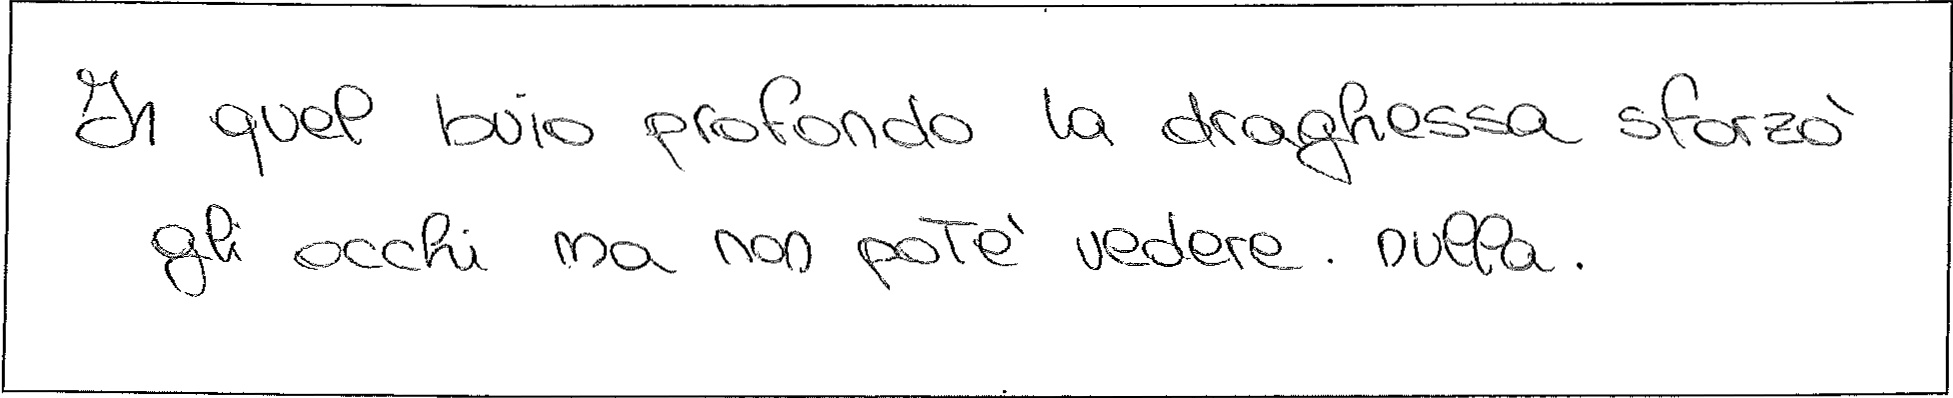 In quel buio profondo la draghessa sforzò
gli occhi ma non potè vedere. nulla.